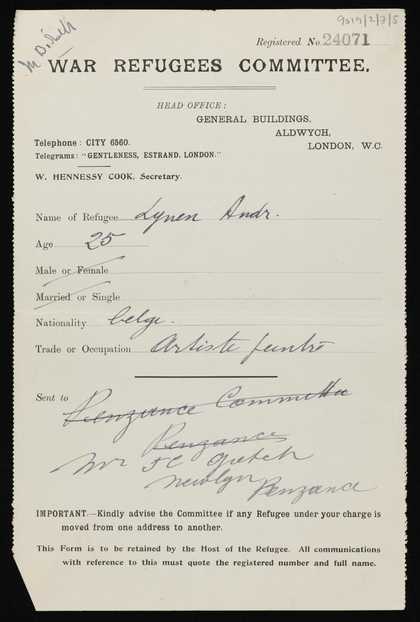 9019/2/7/5
Registered No. 24071
WAR REFUGEES COMMITTEE.
HEAD OFFICE:
GENERAL BUILDINGS,
ALDWYCH,
LONDON, W.C.
Telephone: CITY 6560.
Telegrams: "GENTLENESS, ESTRAND, LONDON."
W. HENNESSY COOK, Secretary.
Name of Refugee Lynen Andr.
Age 25
Male or Female
Married or Single
Nationality belge.
Trade or Occupation Artiste peintre
Sent to Penzance Committee
Penzance
Mr T C Gotch
Newlyn
Penzance
IMPORTANT.—Kindly advise the Committee if any Refugee under your charge is
moved from one address to another.
This Form is to be retained by the Host of the Refugee. All communications
with reference to this must quote the registered number and full name.